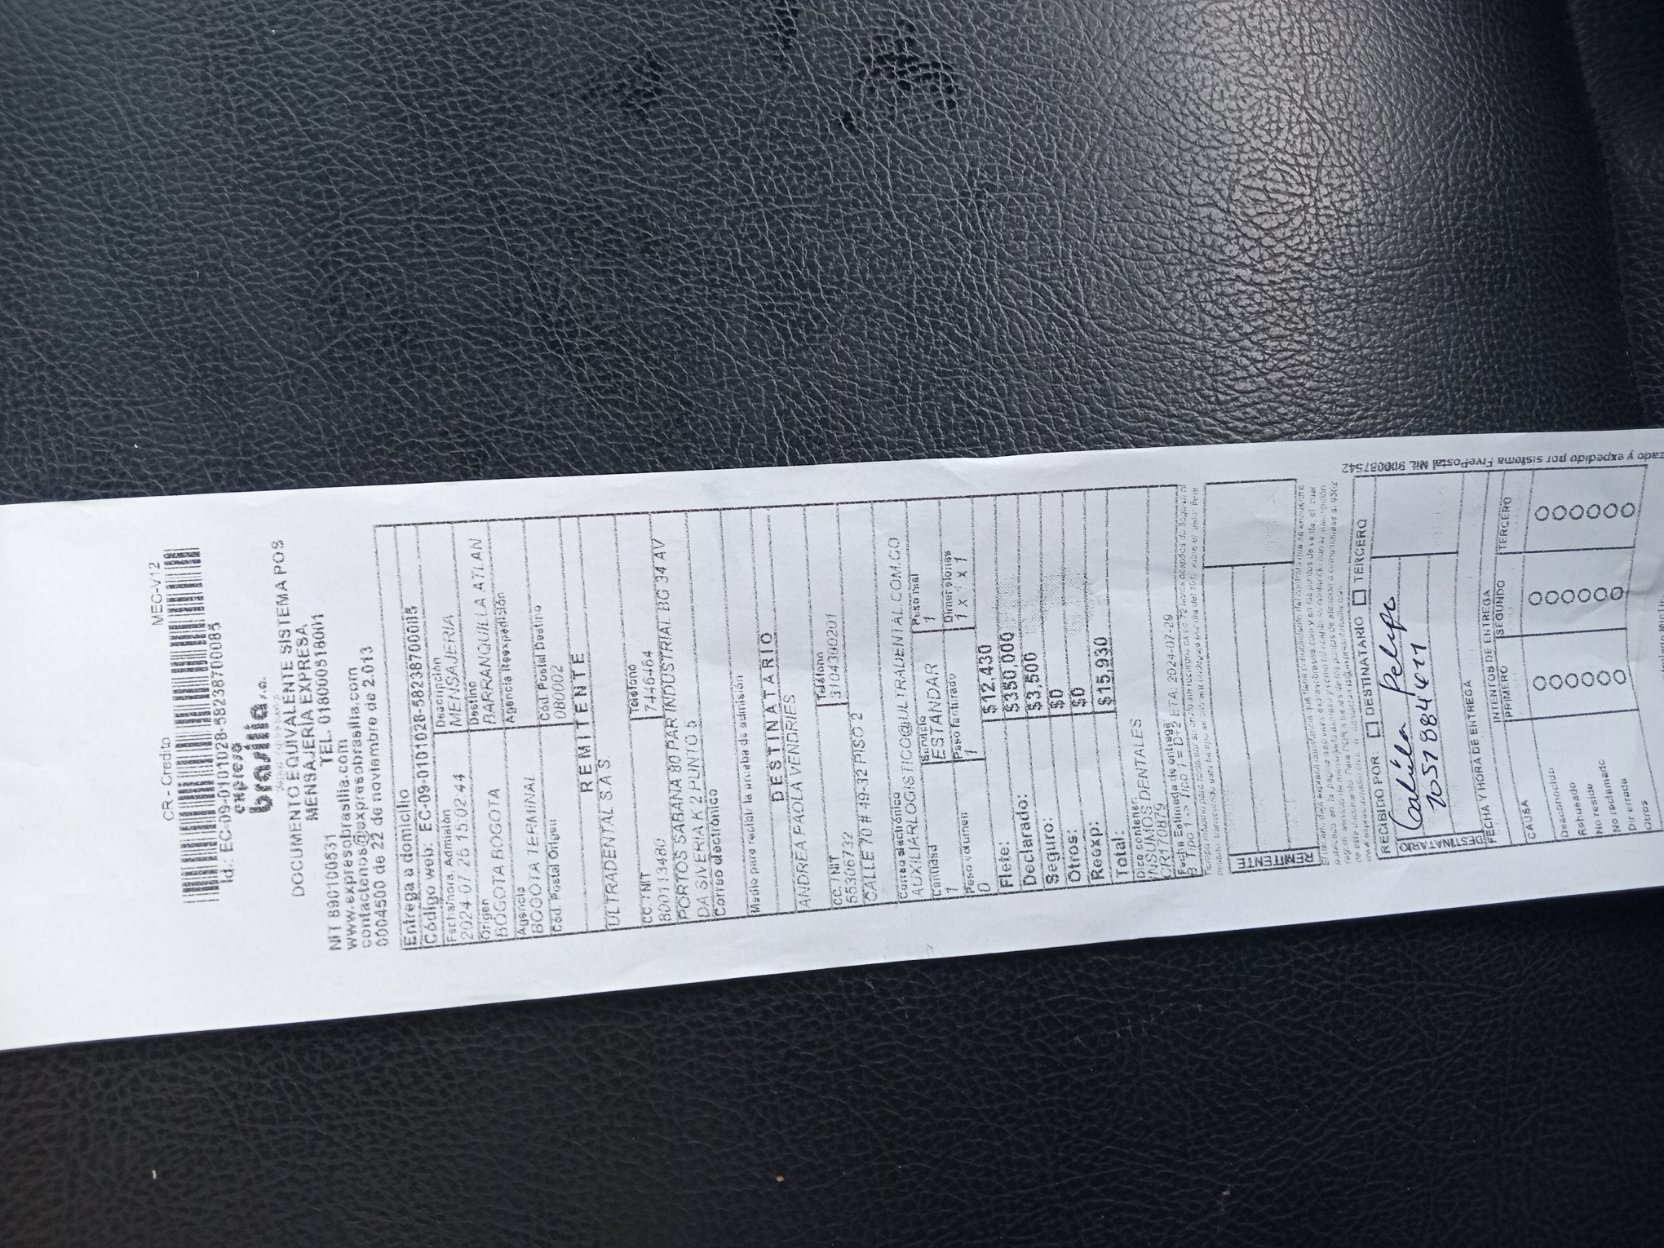 CR - Credito MEC-V12
Id.: EC-09-0101028-582387000085
expreso
brasilia s.a.
DOCUMENTO EQUIVALENTE SISTEMA POS
MENSAJERIA EXPRESA
TEL. 018000518001
NIT 890100531
www.expresobrasilia.com
contactenos@expresobrasilia.com
0004500 de 22 de noviembre de 2.013
Entrega a domicilio
Código web: EC-09-0101028-582387000085
Fecha/hora Admisión Descripción
2024 07 26 15 02 44 MENSAJERIA
Origen Destino
BOGOTA BOGOTA BARRANQUILLA ATLAN
Agencia Agencia Reexpedición
BOGOTA TERMINAL
Cód. Postal Origen Cód. Postal Destino
080002
REMITENTE
ULTRADENTAL S A S
CC / NIT Teléfono
800113480 7446464
PORTOS SABANA 80 PAR INDUSTRIAL BG 34 AV
DA SIVERIA K 2 PUNTO 5
Correo electrónico
Medio para recibir la prueba de admisión
DESTINATARIO
ANDREA PAOLA VENDRIES
CC / NIT Teléfono
55306732 3104390201
CALLE 70 # 49-32 PISO 2
Correo electrónico
AUXILIARLOGISTICO@ULTRADENTAL.COM.CO
Cantidad Servicio Peso real
1 ESTANDAR 1
Peso volumen Peso facturado Dimensiones
0 1 1 x 1 x 1
Flete: $12,430
Declarado: $350,000
Seguro: $3,500
Otros: $0
Reexp: $0
Total: $15,930
Dice contener:
INSUMOS DENTALES
Fecha Estimada de entrega
ETA. 2024-07-29
REMITENTE
RECIBIDO POR: DESTINATARIO TERCERO
DESTINATARIO
FECHA Y HORA DE ENTREGA
INTENTOS DE ENTREGA
CAUSA PRIMERO SEGUNDO TERCERO
Desconocido
Rehusado
No reside
No reclamado
Dir errada
Otros
zado y expedido por sistema FivePostal Nit. 900037542